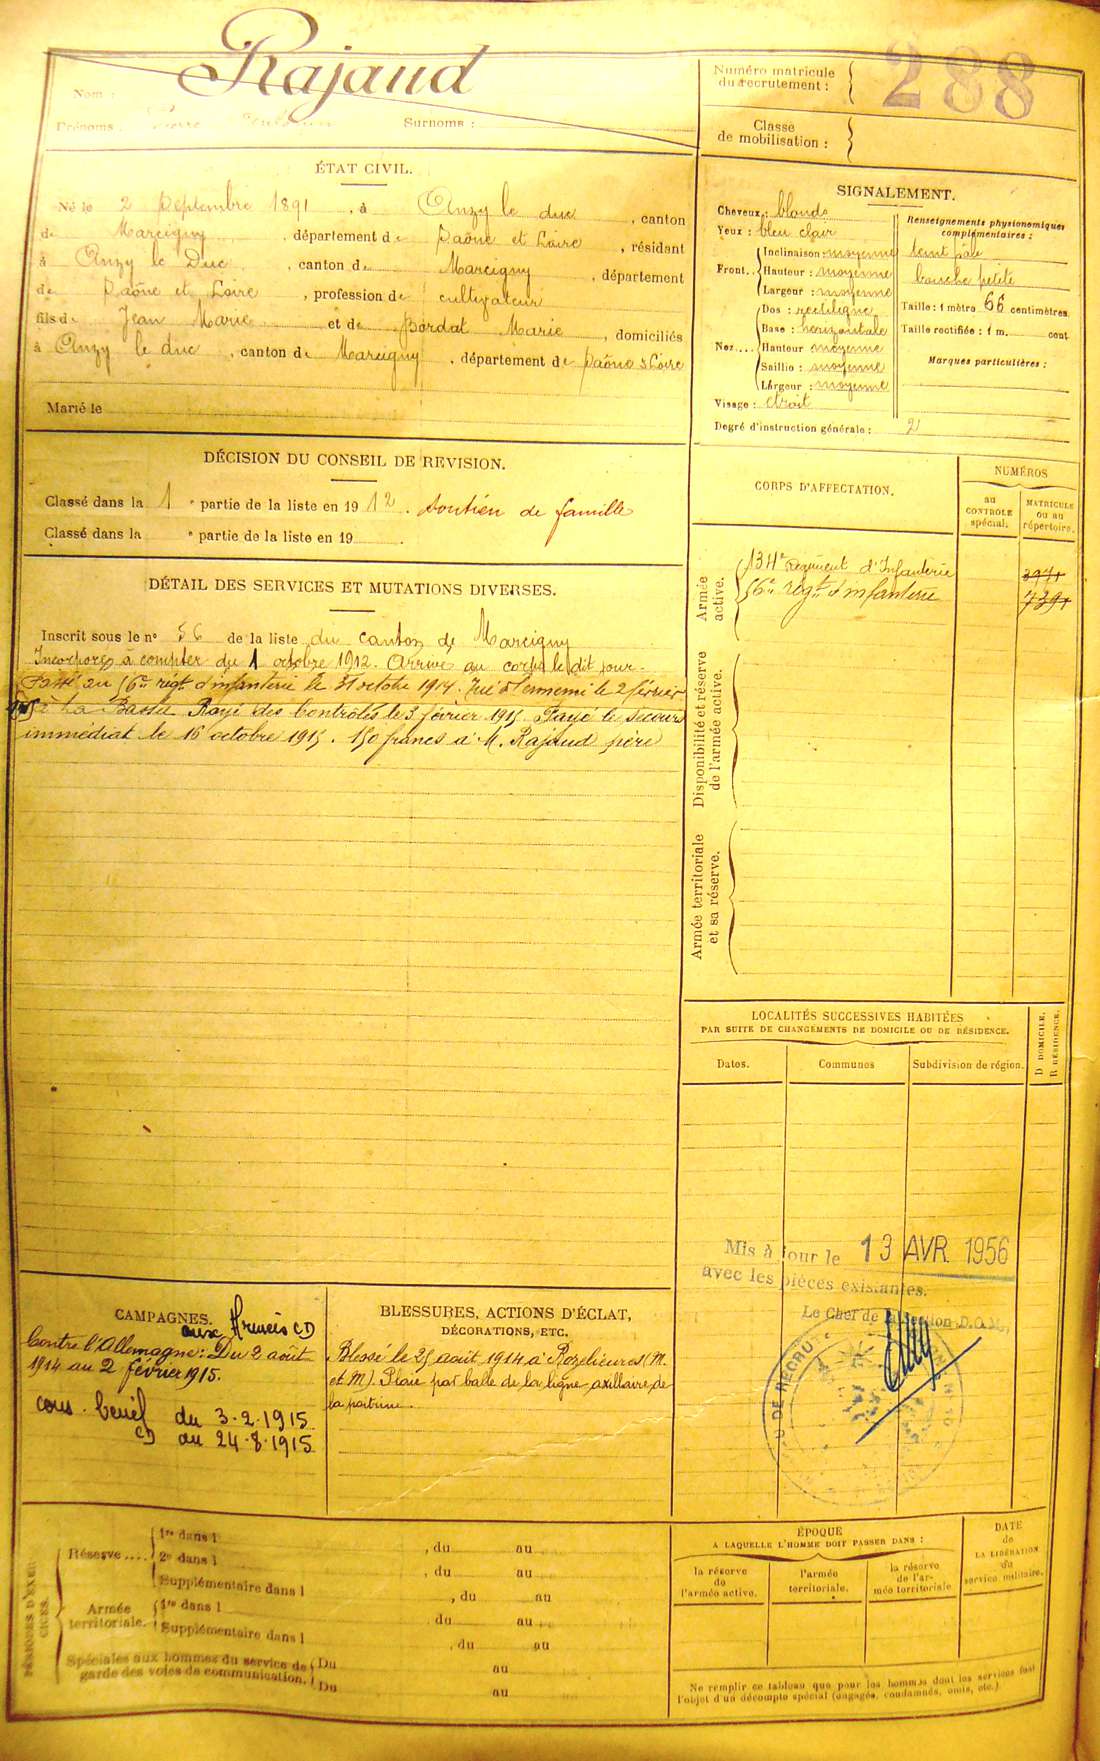 Nom : Rajaud
Prénoms : Pierre Surnoms :
Numéro matricule du recrutement : 288
Classe de mobilisation :
ÉTAT CIVIL.
Né le 2 Septembre 1891, à Anzy le duc, canton
de Marcigny, département de Saône et Loire, résidant
à Anzy le Duc, canton de Marcigny, département
de Saône et Loire, profession de cultivateur
fils de Jean Marie et de Bordat Marie, domiciliés
à Anzy le duc, canton de Marcigny, département de Saône & Loire
Marié le
SIGNALEMENT.
Cheveux : blonds
Yeux : bleu clair
Front.. Inclinaison : moyenne
Hauteur : moyenne
Largeur : moyenne
Nez.... Dos : rectiligne
Base : horizontale
Hauteur moyenne
Saillie : moyenne
Largeur : moyenne
Visage : étroit
Degré d'instruction générale : 2
Renseignements physionomiques complémentaires :
teint pâle
bouche petite
Taille : 1 mètre 66 centimètres.
Taille rectifiée : 1 m. cent.
Marques particulières :
DÉCISION DU CONSEIL DE REVISION.
Classé dans la 1 e partie de la liste en 1912. Soutien de famille
Classé dans la e partie de la liste en 19 .
DÉTAIL DES SERVICES ET MUTATIONS DIVERSES.
Inscrit sous le n° 56 de la liste du canton de Marcigny
Incorporé à compter du 1 octobre 1912. Arrivé au corps le dit jour.
Passé au 56e régt d'infanterie le 31 octobre 1914. Tué à l'ennemi le 2 février
1915 à La Bassée Rayé des Contrôles le 3 février 1915 Payé le secours
immédiat le 16 octobre 1915. 150 francs à M. Rajaud père
CORPS D'AFFECTATION.
NUMÉROS
au CONTROLE spécial.
MATRICULE ou au répertoire.
Armée active.
134e Régiment d'Infanterie
56e régt d'infanterie
Disponibilité et réserve de l'armée active.
Armée territoriale et sa réserve.
LOCALITÉS SUCCESSIVES HABITÉES
PAR SUITE DE CHANGEMENTS DE DOMICILE OU DE RÉSIDENCE.
Dates.
Communes
Subdivision de région.
D DOMICILE.
R RÉSIDENCE.
Mis à jour le 13 AVR. 1956
avec les pièces existantes.
Le Chef de la Section D.O.M.,
CAMPAGNES.
aux Armées CD
Contre l'Allemagne : Du 2 août
1914 au 2 février 1915.
du 3.2.1915
CD au 24.8.1915
BLESSURES, ACTIONS D'ÉCLAT,
DÉCORATIONS, ETC.
Blessé le 25 août 1914 à Rozelieures (M.
et M). Plaie par balle de la ligne axillaire de
la poitrine.
PÉRIODES D'EXERCICES.
Réserve.... 1re dans l , du au
2e dans l , du au
Supplémentaire dans l , du au
Armée territoriale. 1re dans l , du au
Supplémentaire dans l , du au
Spéciales aux hommes du service de garde des voies de communication. Du au
Du au
ÉPOQUE
A LAQUELLE L'HOMME DOIT PASSER DANS :
la réserve de l'armée active.
l'armée territoriale.
la réserve de l'armée territoriale
DATE de LA LIBÉRATION du service militaire.
Ne remplir ce tableau que pour les hommes dont les services font
l'objet d'un décompte spécial (engagés, condamnés, omis, etc.).